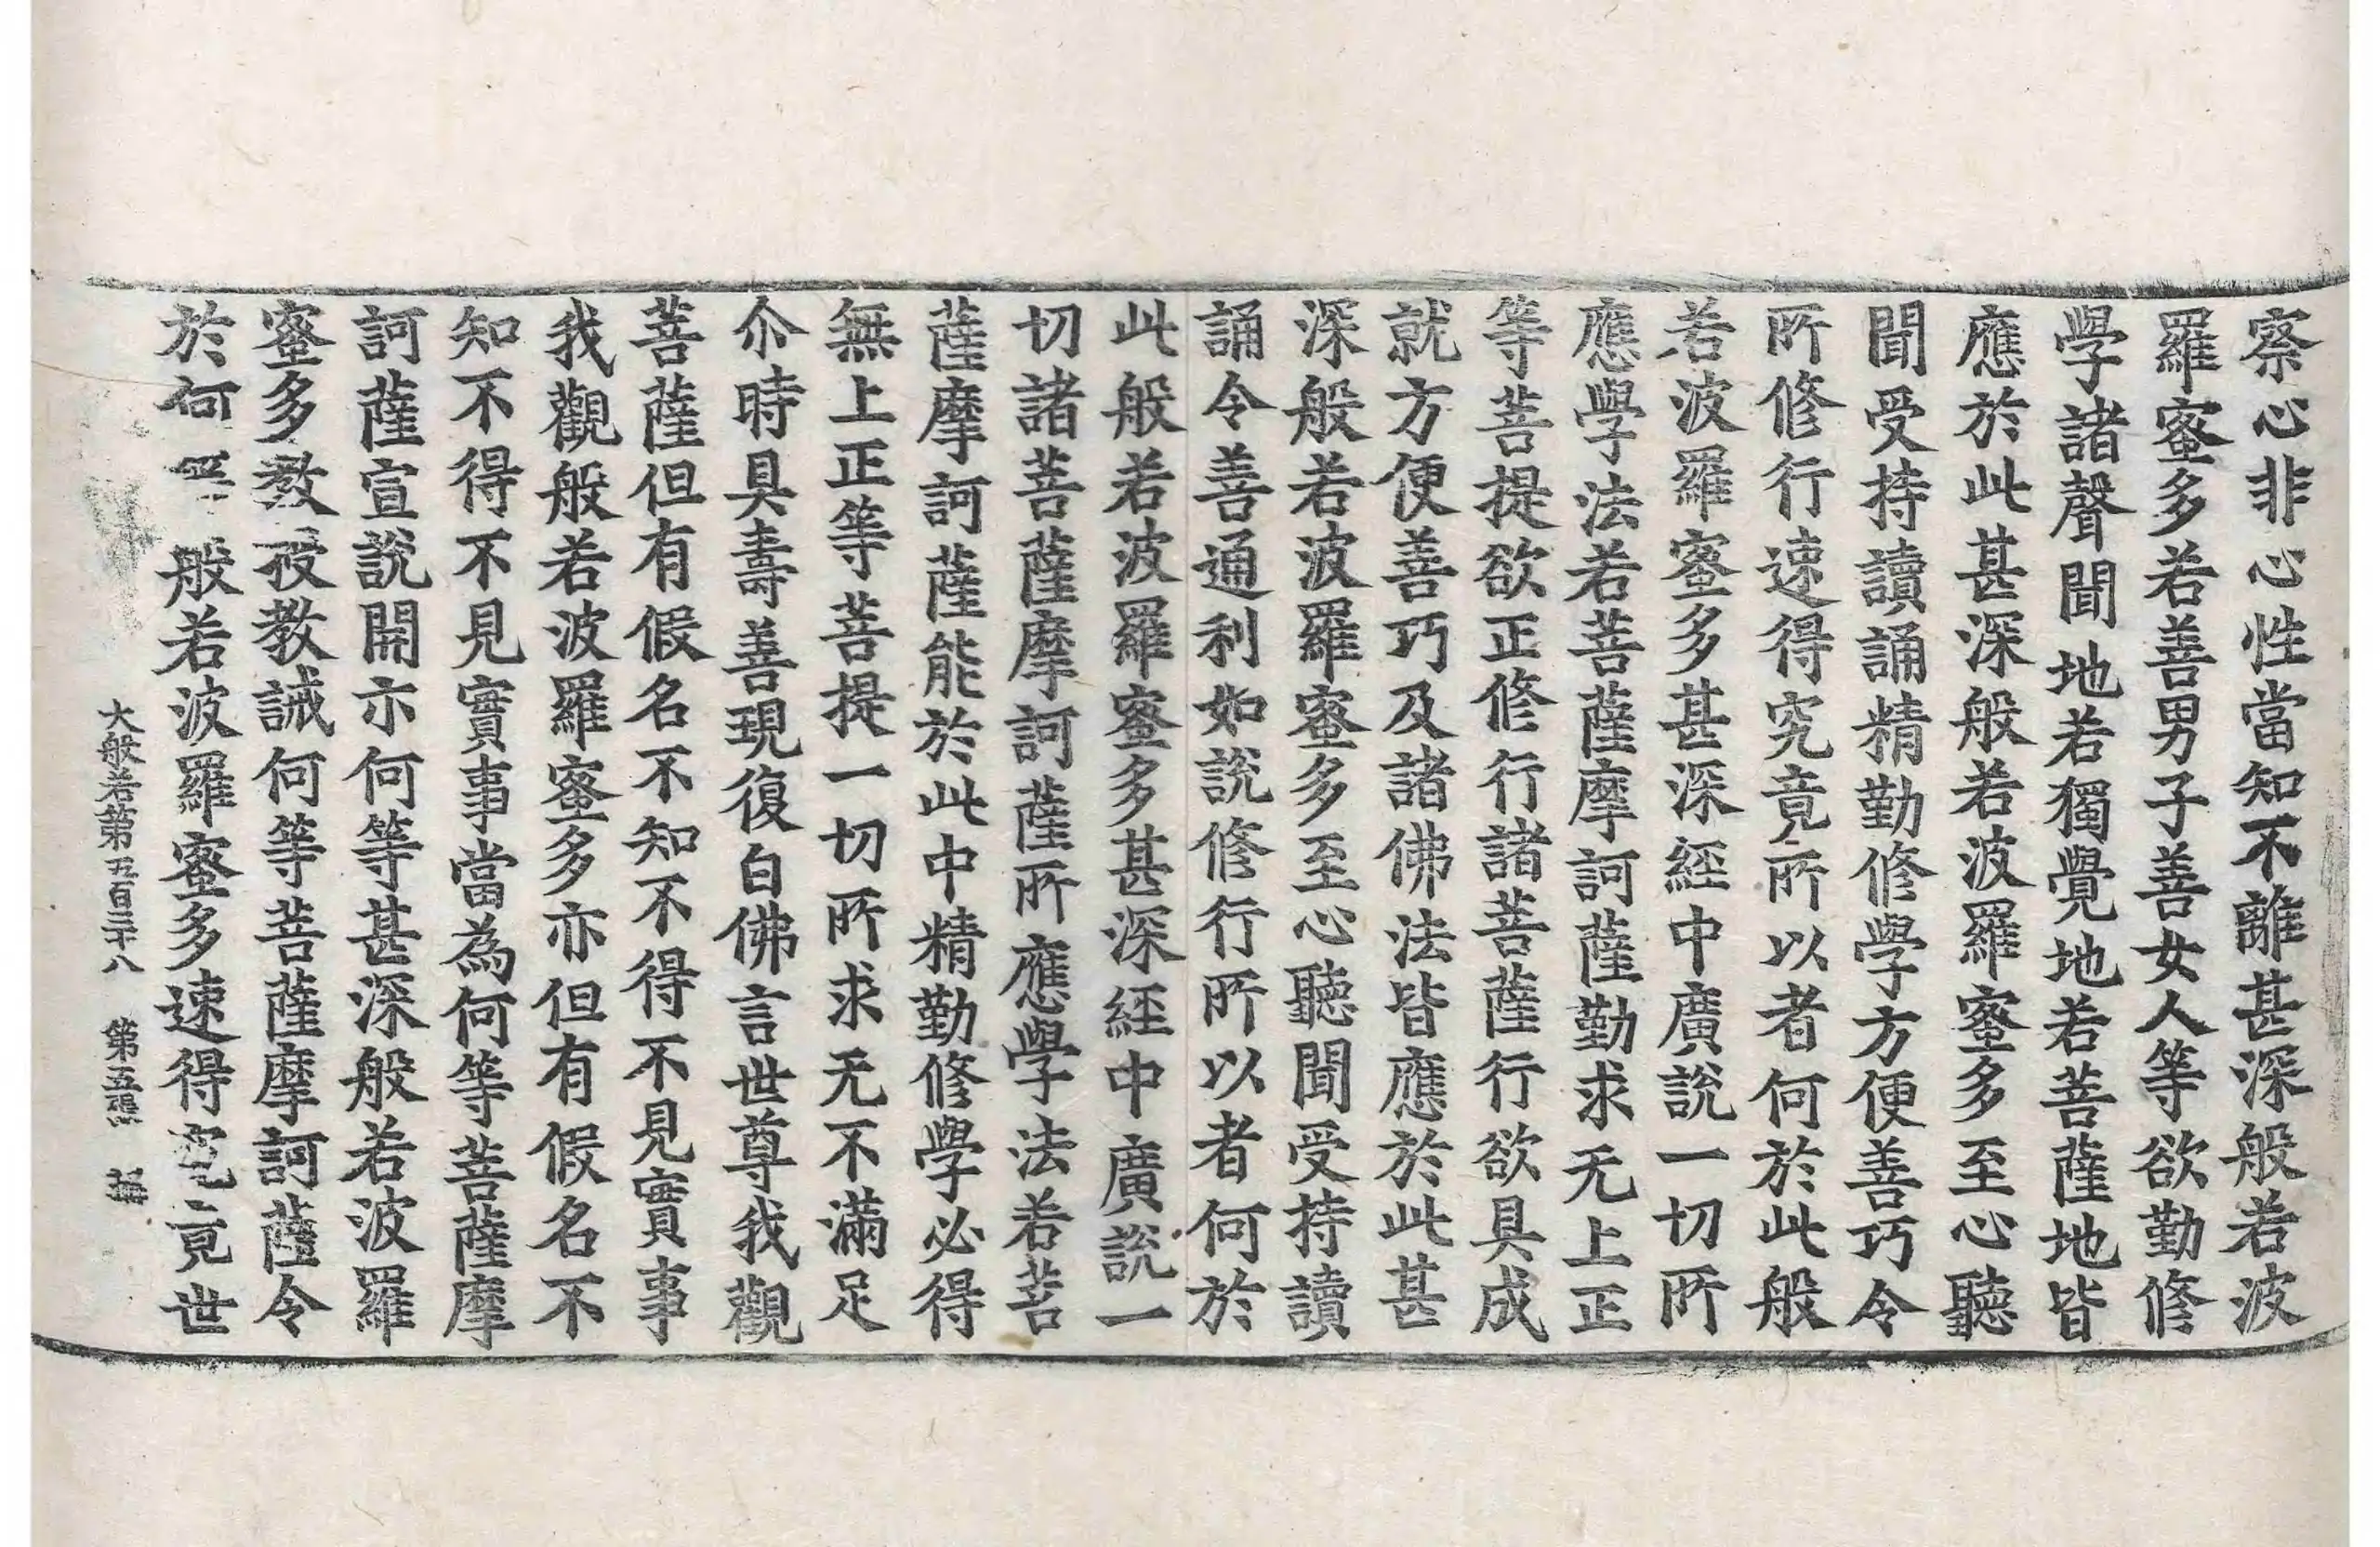 察心非心性當知不離甚深般若波
羅蜜多若善男子善女人等欲勤修
學諸聲聞地若獨覺地若菩薩地皆
應於此甚深般若波羅蜜多至心聽
聞受持讀誦精勤修學方便善巧令
所修行速得究竟所以者何於此般
若波羅蜜多甚深經中廣說一切所
應學法若菩薩摩訶薩勤求无上正
等菩提欲正修行諸菩薩行欲具成
就方便善巧及諸佛法皆應於此甚
深般若波羅蜜多至心聽聞受持讀
誦令善通利如說修行所以者何於
此般若波羅蜜多甚深經中廣說一
切諸菩薩摩訶薩所應學法若菩
薩摩訶薩能於此中精勤修學必得
無上正等菩提一切所求无不滿足
尒時具壽善現復白佛言世尊我觀
菩薩但有假名不知不得不見實事
我觀般若波羅蜜多亦但有假名不
知不得不見實事當為何等菩薩摩
訶薩宣說開示何等甚深般若波羅
蜜多教授教誡何等菩薩摩訶薩令
於何等般若波羅蜜多速得究竟世
大般若第五百三十八 第五張